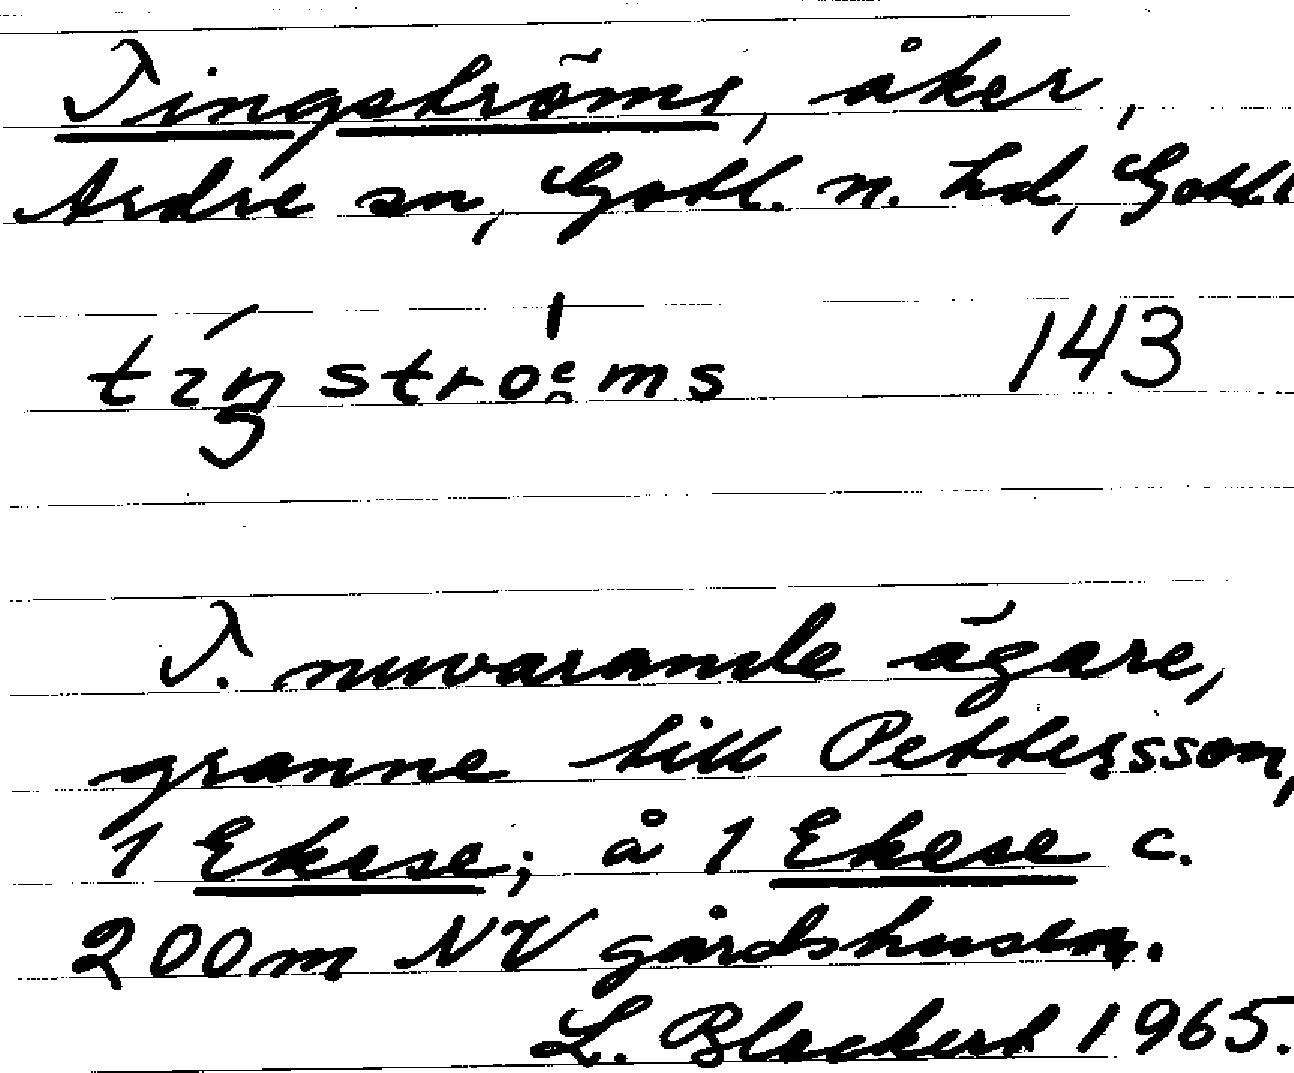 Tingströms, åker,
Ardre sn, Gotl. n. hd, Gotl.
tıŋstroms 143
T. nuvarande ägare,
granne till Pettersson,
1 Ekese; å 1 Ekese c.
200m NV gårdshusen.
L. Blockert 1965.